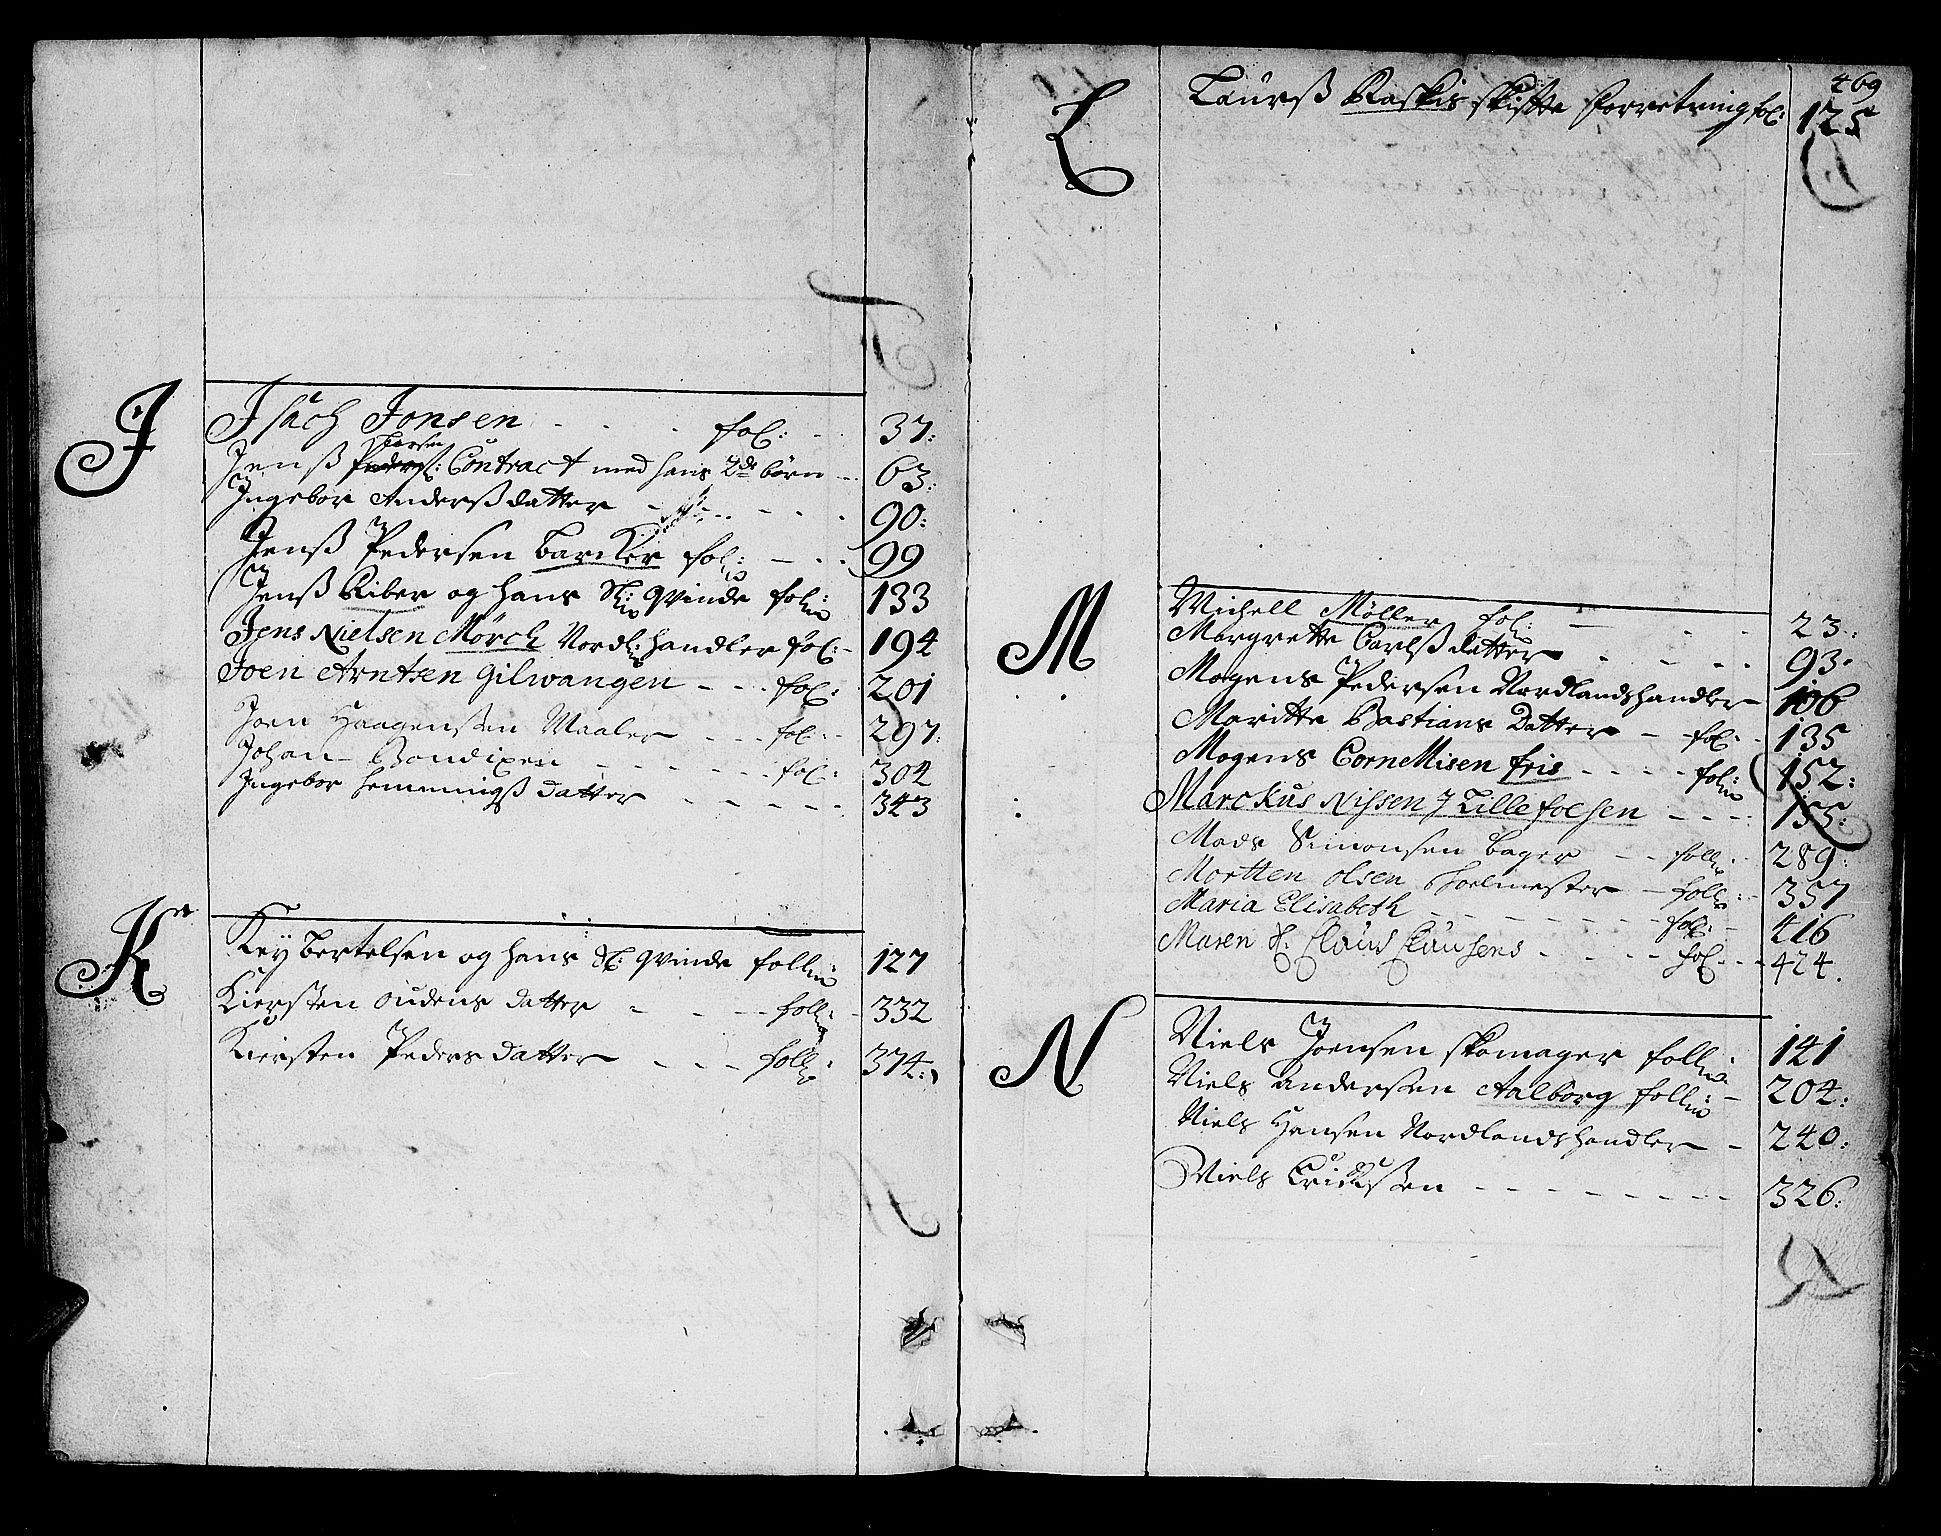 J
Isach Jonsen . . . fol: . . 37:
Jenß Larsen Contract med hans 2de børn -- 63:
Ingebor Anderßdatter - - - - 90:
Jenß Pedersen Barcker fol: - - 99
Jenß Riber og hans Sl: Qvinde fol: 133
Jens Nielsen Mörch Nordl: handler fol: - 194
Joen Arntsen Gilwangen - - - fol: 201
Joen Haagenßen Maaler - - - fol: - 297:
Johan Bendixen - - - - - - fol: 302
Ingebor Hemmingß datter - - - - - 343
K
Key Bertelsen og hans Sl: Qvinde foll: 127
Kiersten Oudens datter - - - - foll: - 332
Kiersten Peders datter - - - foll: 374:
469
L
Laurß Raskis skifte forretning fol: 125
M
Michell Møller fol: - - - 23:
Margrette Carlßdatter . - - - 93:
Mogens Pedersen Nordlandshandler 106
Maritte Bastians Datter - - fol: - 135
Mogens Cornelisen fris - - - - fol: 152:
Marckus Nissen J Lille fosen - - - 155:
Mads Simonsen bager - - foll: - 289:
Mortten Olsen Skoelmester - foll: - 357
Maria Elisabeth - - - - - - - fol: - 416
Maren Sl: Claus Clausens - - - - fol: - - 424.
N
Niels Joensen skomager foll: 141
Niels Andersen Aalborg foll: - 204:
Niels Hansen Nordlandshandler - 240:
Niels Erickßen - - - - - - - - 326: